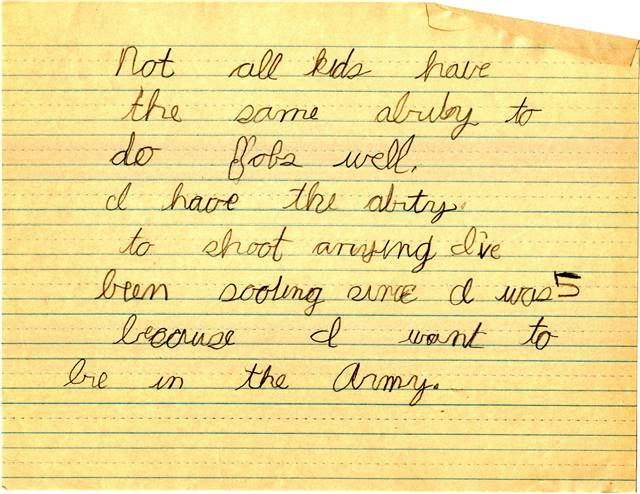 Not all kids have
the same abuby to
do Jobs well.
I have the abity.
to shoot anying I've
been sooting since I was 5
because I want to
be in the Army.